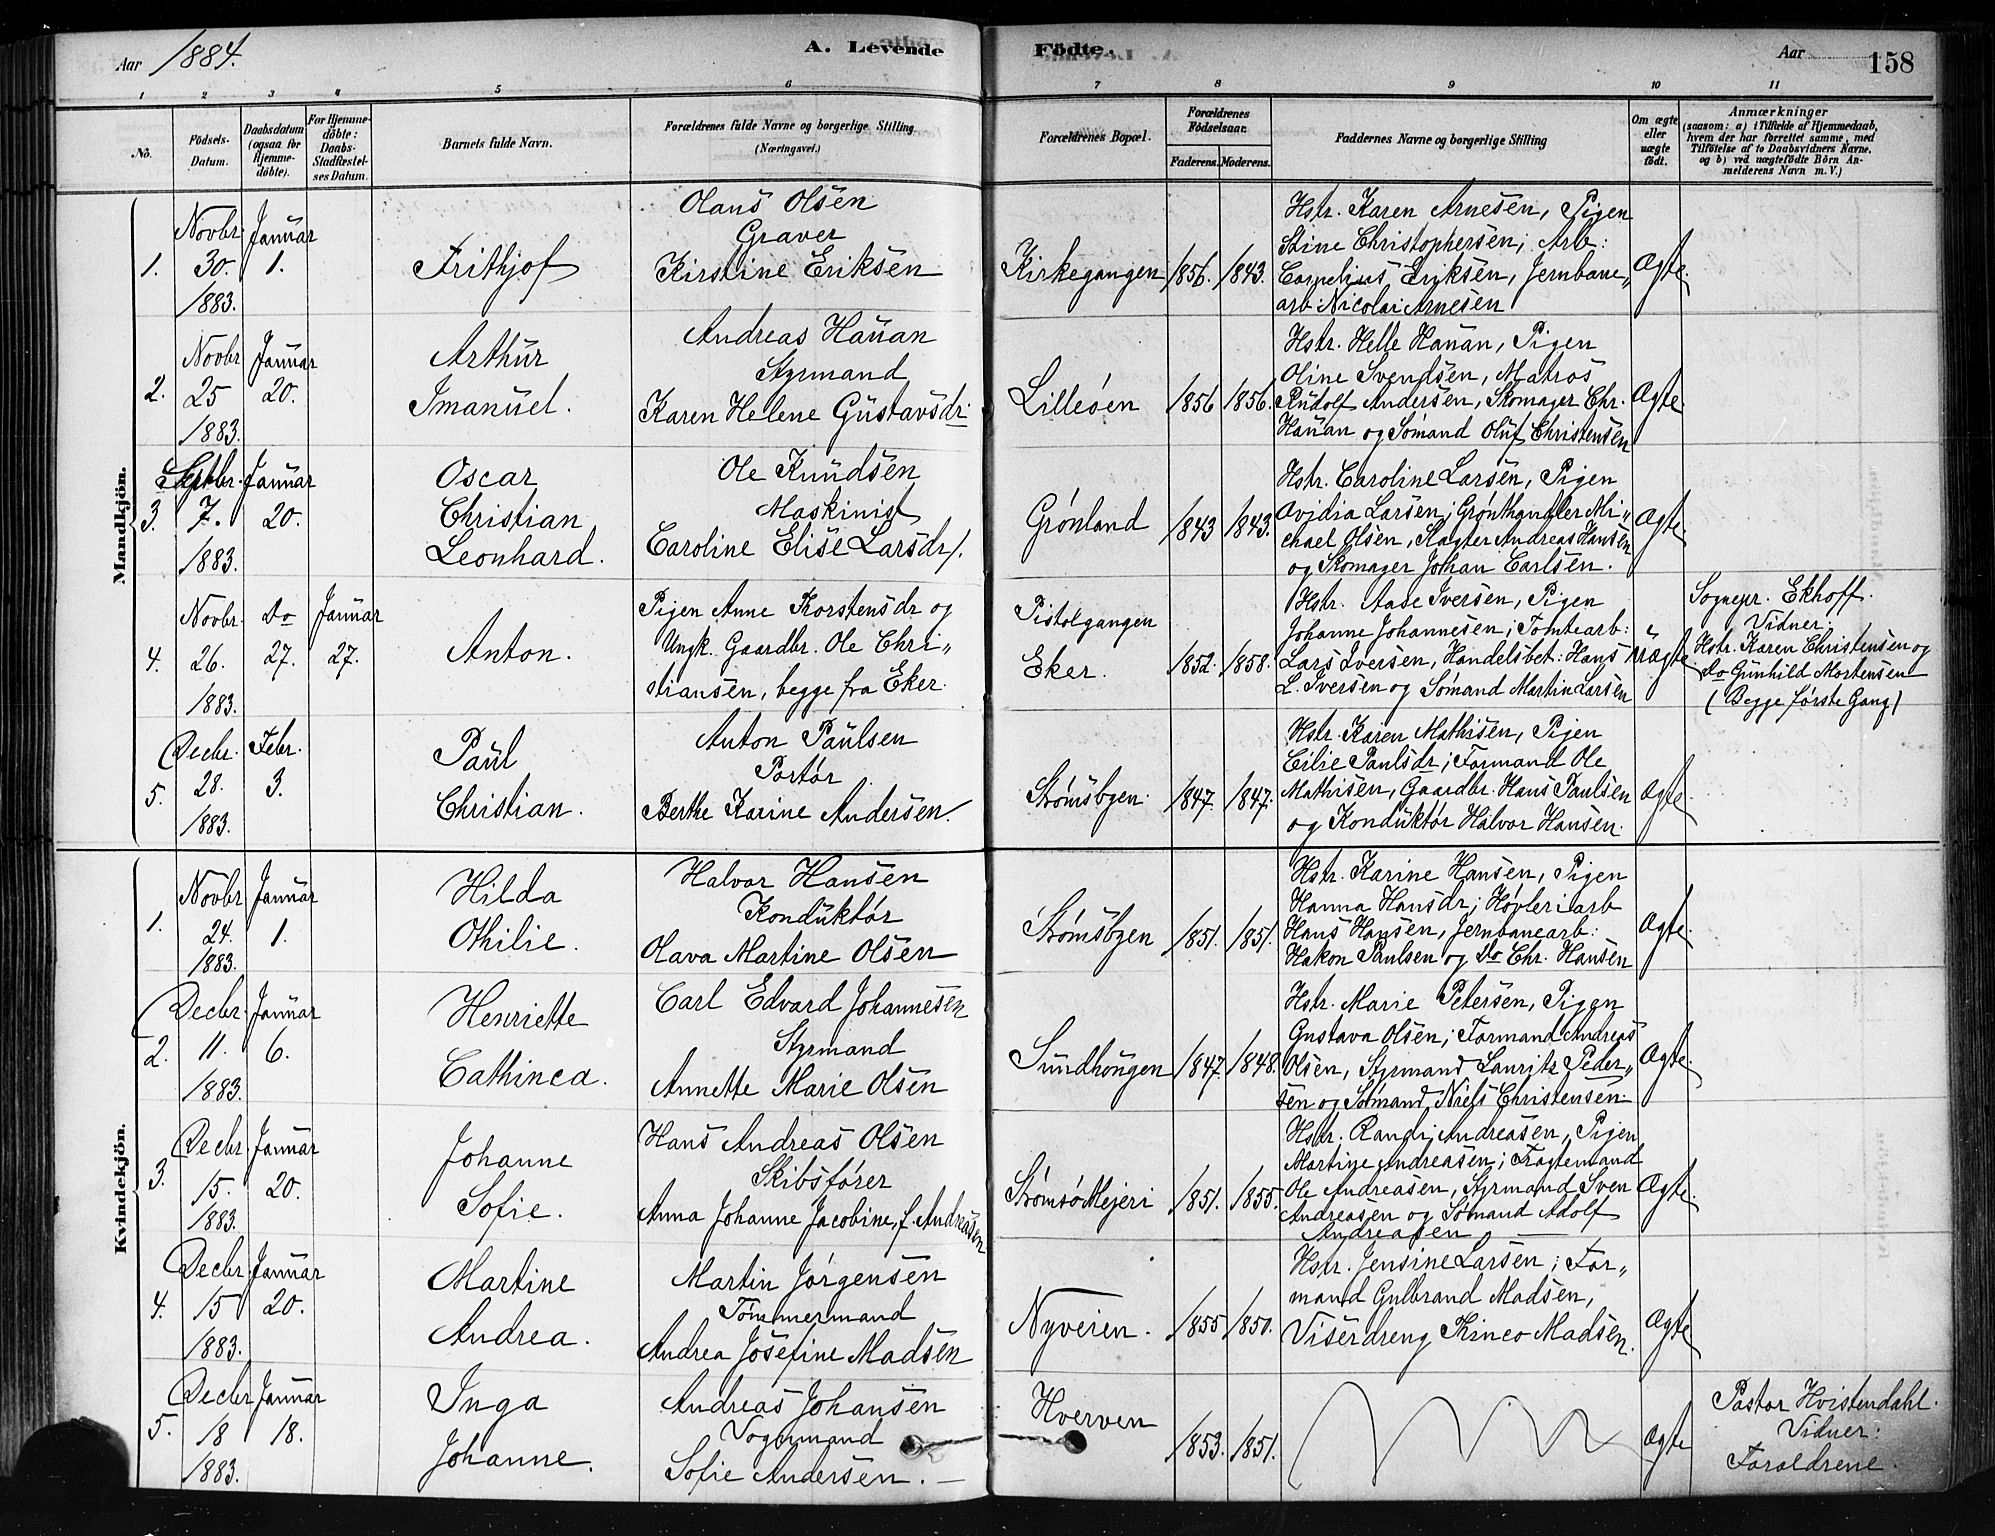 Aar 1884.
A. Levende
Födte.
Aar
158
1 2 3 4 5 6 7 8 9 10 11
No.
Födsels-
Datum.
Daabsdatum
(ogsaa for
Hjemme-
döbte).
For Hjemme-
döbte:
Daabs-
Stadfæstel-
ses Datum.
Barnets fulde Navn.
Forældrenes fulde Navne og borgerlige Stilling.
(Næringsvei.)
Forældrenes Bopæl.
Forældrenes
Födselsaar.
Faderens. Moderens.
Faddernes Navne og borgerlige Stilling
Om ægte
eller
uægte
födt.
Anmærkninger
(saasom: a) i Tilfælde af Hjemmedaab,
hvem der har forrettet samme, med
Tilföielse af to Daabsvidners Navne.
og b) ved uægtefödte Börn An-
melderens Navn m. V.)
Mandkjön.
1.
Novbr.
30.
1883.
Januar
1.
Frithjof
Olaus Olsen
Graver
Kirstine Eriksen
Kirkegangen
1856. 1843.
Hstr. Karen Arnesen, Pigen
Stine Christophersen; Arb:
Cornelius Eriksen, Jernbane„
arb. Nicolai Arnesen
Ægte.
2.
Novbr
25
1883.
Januar
20.
Arthur
Imanuel.
Andreas Hauan
Styrmand
Karen Helene Gustavsdr.
Lilleöen
1856 1856.
Hstr. Helle Hauan, Pigen
Oline Svendsen, Matros
Rudolf Andersen, Skomager Chr.
Hauan og Sömand Oluf Christensen
Ægte
3.
Septbr.
7.
1883.
Januar
20.
Oscar
Christian
Leonhard.
Ole Knudsen
Maskinist
Caroline Elise Larsdr.
Grønland
1843 1843.
Hstr. Caroline Larsen, Pigen
Ovidia Larsen; Grønthandler Mi„
chael Olsen, Slagter Andreas Hansen
og Skomager Johan Carlsen.
Ægte
4.
Novbr.
26.
1883.
Do
27.
Januar
27.
Anton.
Pigen Anne Thorstensdr og
Ungk. Gaardbr. Ole Chri„
stiansen, begge fra Eker.
Pistolgangen
Eker.
1852. 1858.
Hstr. Aase Iversen, Pigen
Johanne Johannesen; Tomtearb:
Lars Iversen, Handelsbet: Hans
L. Iversen og Sömand Martin Larsen
uægte.
Sognepr. Ekhoff.
Vidner:
Hstr. Karen Christensen og
do Gunhild Mortensen
(Begge første Gang)
5.
Decbr.
28.
1883.
Febr.
3.
Paul
Christian.
Anton Paulsen
Portør
Berthe Karine Andersen.
Strømsbyen.
1847. 1847.
Hstr. Karen Mathisen, Pigen
Cilie Paulsdr; Formand Ole
Mathisen, Gaardbr. Hans Paulsen
og Konduktør Halvor Hansen.
Ægte.
Kvindekjön.
1.
Novbr
24.
1883.
Januar
1.
Hilda
Othilie.
Halvor Hansen
Konduktør
Olava Martine Olsen
Strømsbyen
1851. 1851.
Hstr. Karine Hansen, Pigen
Hanna Hansdr; Høvleriarb
Hans Hansen, Jernbanearb:
Hakon Paulsen og Do Chr. Hansen
Ægte.
2.
Decbr.
11.
1883.
Januar
6.
Henriette
Cathinca.
Carl Edvard Johannesen
Styrmand
Annette Marie Olsen
Sundhougen
1847. 1848.
Hstr. Marie Petersen, Pigen
Gustava Olsen; Formand Andreas
Olsen, Styrmand Laurits Peder„
sen og Sømand Niels Christensen.
Ægte.
3.
Decbr.
15.
1883.
Januar
20.
Johanne
Sofie.
Hans Andreas Olsen
Skibsfører
Anna Johanne Jacobine, f. Andreasen
Strømsø Mejeri
1851. 1855.
Hstr. Randi Andreasen, Pigen
Martine Andreasen; Fragtemand
Ole Andreasen, Styrmand Sven
Andreasen og Sømand Adolf
Andreasen
Ægte.
4.
Decbr.
15
1883.
Januar
20.
Martine
Andrea.
Martin Jørgensen
Tømmermand
Andrea Josefine Madsen
Nyveien.
1855 1850.
Hstr. Jensine Larsen; For„
mand Gulbrand Madsen,
Viserdreng Thinco Madsen.
Ægte
5.
Decbr
18
1883.
Januar
18.
Inga
Johanne.
Andreas Johansen
Vognmand
Sofie Andersen.
Hverven
1853. 1851.
Ægte
Pastor Hvistendahl.
Vidner:
Forældrene.